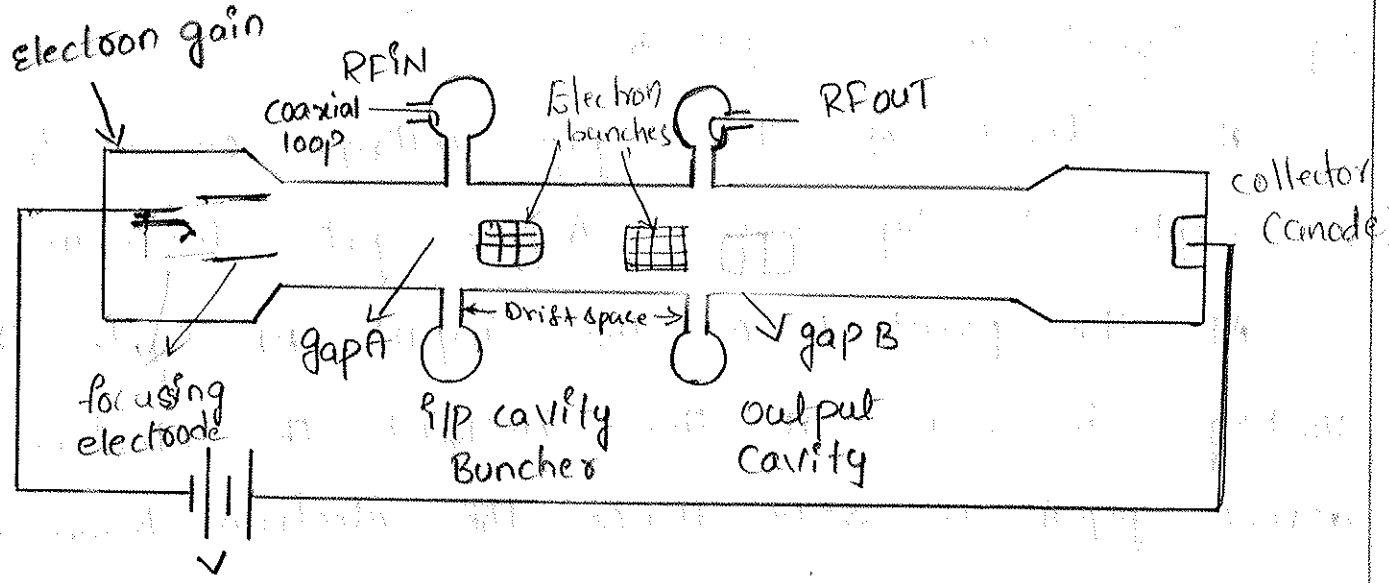 Electron gain
RFIN
coaxial
loop
Electron
bunches
RFOUT
collector
(anode
gapA
← Drift space →
gap B
focusing
electrode
i/p cavity
Buncher
output
cavity
V